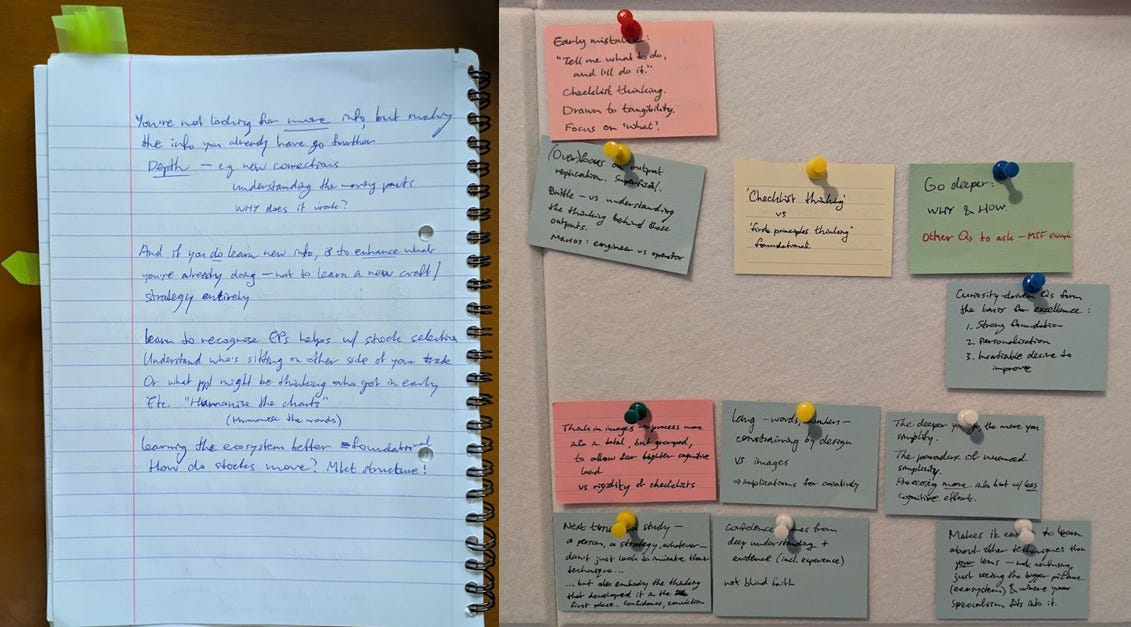 You're not looking for more info, but making
the info you already have go further
Depth — eg new connections
understanding the moving parts
WHY does it work?
And if you do learn new info, is to enhance what
you're already doing — not to learn a new craft/
strategy entirely
learn to recognise EPs helps w/ stock selection
Understand who's sitting on other side of your trade
Or what ppl might be thinking who got in early
Etc. "Humanise the charts"
(Humanise the words)
learning the ecosystem better = foundational
How do stocks move? Mkt structure!
Early mistake:
"Tell me what to do,
and I'll do it."
Checklist thinking.
Drawn to tangibility.
Focus on 'what'.
(Over)focus on output
replication. Superficial.
Brittle — vs understanding
the thinking behind those
outputs.
: engineer vs operator
'Checklist thinking'
vs
'first principles thinking'
foundational.
Go deeper:
WHY & HOW.
Other Qs to ask — example
Curiosity-driven Qs form
the basis for excellence:
1. Strong foundation
2. Personalisation
3. Insatiable desire to
improve
Think in images → process more
info in total, but grouped,
to allow for higher cognitive
load
vs rigidity of checklists
Lang — words, —
constraining by design
vs images
⇒ implications for creativity
The deeper you the more you
simplify.
The paradox of nuanced
simplicity.
Accessing more info but w/ less
cognitive effort.
Next time study —
a person, a strategy, whatever —
don't just look to imitate their
technique...
... but also embody the thinking
that developed it in the
first place. Confidence, conviction
Confidence comes from
deep understanding +
evidence (incl. experience)
not blind faith
Makes it to learn
about other techniques than
your lens — not confusing,
just seeing the bigger picture
(ecosystem) & where your
specialism fits into it.